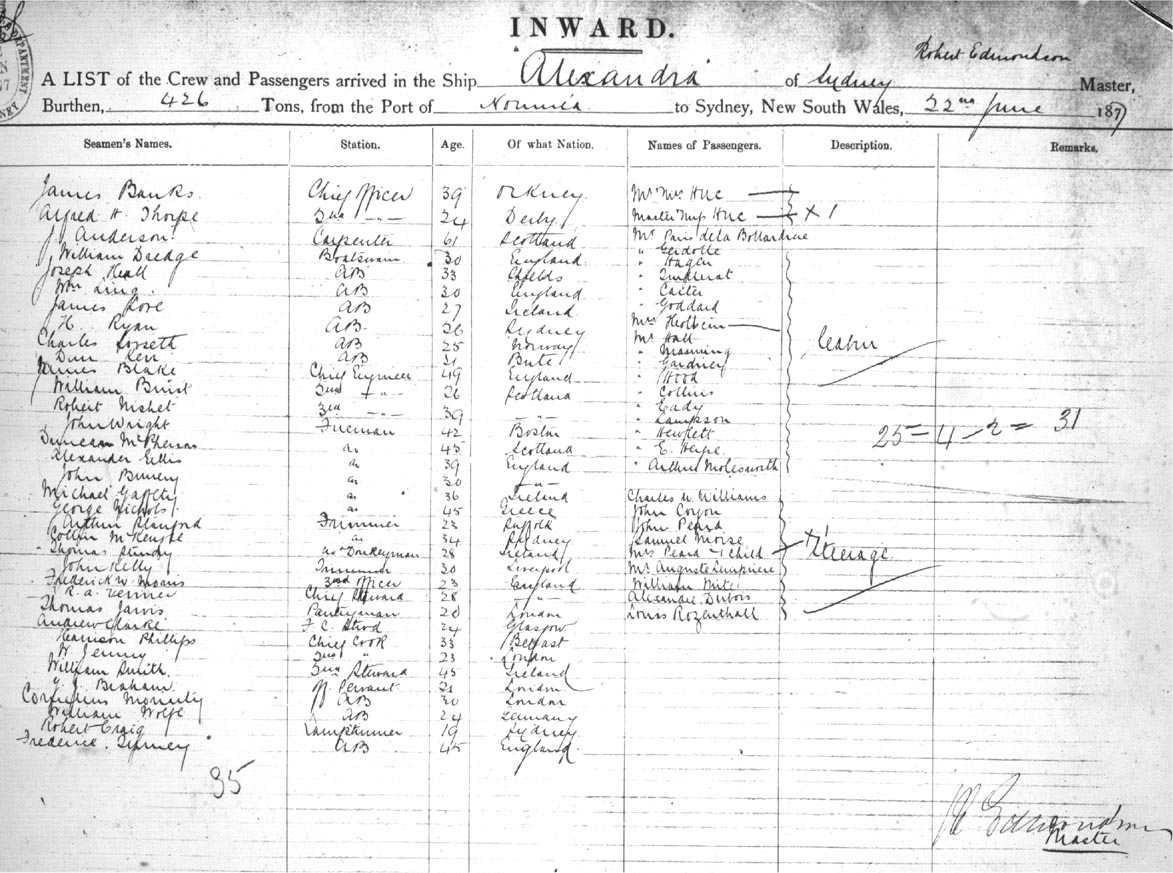 INWARD.
Robert Edmondson
A LIST of the Crew and Passengers arrived in the Ship Alexandra of Sydney Master,
Burthen, 426 Tons, from the Port of Noumea to Sydney, New South Wales, 22nd June 1877
Seamen's Names. Station. Age. Of what Nation. Names of Passengers. Description. Remarks.
James Banks. Chief Officer 39 Orkney Mr Mrs Huc
Alfred H. Thorpe 2nd -"- 24 Derby Master Huc x 1
J. Anderson. Carpenter 61 Scotland Mr Paris de la Bollardiere
William Dredge Boatswain 30 England "
Joseph Hall AB 33 Shields " Hagen
Wm Ling. AB 30 England "
James Love AB 27 Ireland " Carter
H. Ryan AB. 26 Sydney " Goddard
Charles AB 25 Norway Mrs
Dan Kerr AB 21 Bute Mr Hall
James Blake Chief Engineer 49 England " Manning
William Buist 2nd -"- 26 Scotland " Gardney
Robert Nisbet 3rd -"- 39 -"- " Hood
John Wright Fireman 42 Boston " Collins
Duncan McPherson do 45 Scotland " Eady
Alexander Ellis do 39 England " Sampson
John do 30 -"- " Hewlett
Michael do 36 Ireland " E.
George Nichols do 45 Greece " Arthur Molesworth
Cabin
25 - 4 - 2 = 31
Arthur Blanford Trimmer 23 Suffolk Charles W Williams
Collin McKenzie do 34 Sydney John Coyon
Thomas do & Donkeyman 28 Ireland John Peard
John Kelly Trimmer 30 Liverpool Samuel Moise
Frederick W. Morris 3rd Officer 23 England Mrs Peard & 1 child
R. A. Chief Steward 28 -"- Mr Auguste Lempriere
Thomas Jarvis Pantryman 20 London William
Andrew Clarke F. C. Stwd 24 Glasgow Alexandre Dubois
Harrison Phillips Chief Cook 33 Belfast Louis Rozenthall
Steerage
W. Jenny 2nd " 23 London
William Smith. 2nd Steward 45 Ireland
Braham Servant 21 London
Cornelius Moriarty AB 30 London
William Wolfe AB 24 Germany
Robert Craig Lamptrimmer 19 Sydney
Frederick AB 45 England
35
R Edmondson
Master